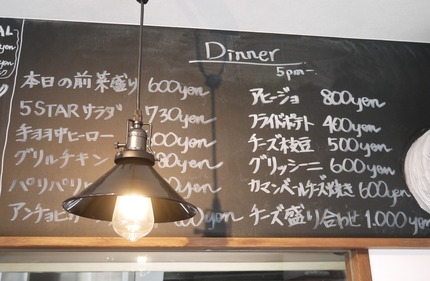 Dinner
5pm-
本日の前菜盛り 600yen
5STARサラダ 730yen
グリルチキン
パリパリ
アンチョビ yen
アヒージョ 800yen
フライドポテト 400yen
チーズ枝豆 500yen
グリッシーニ 600yen
カマンベールチーズ焼き 600yen
チーズ盛り合わせ 1.000yen